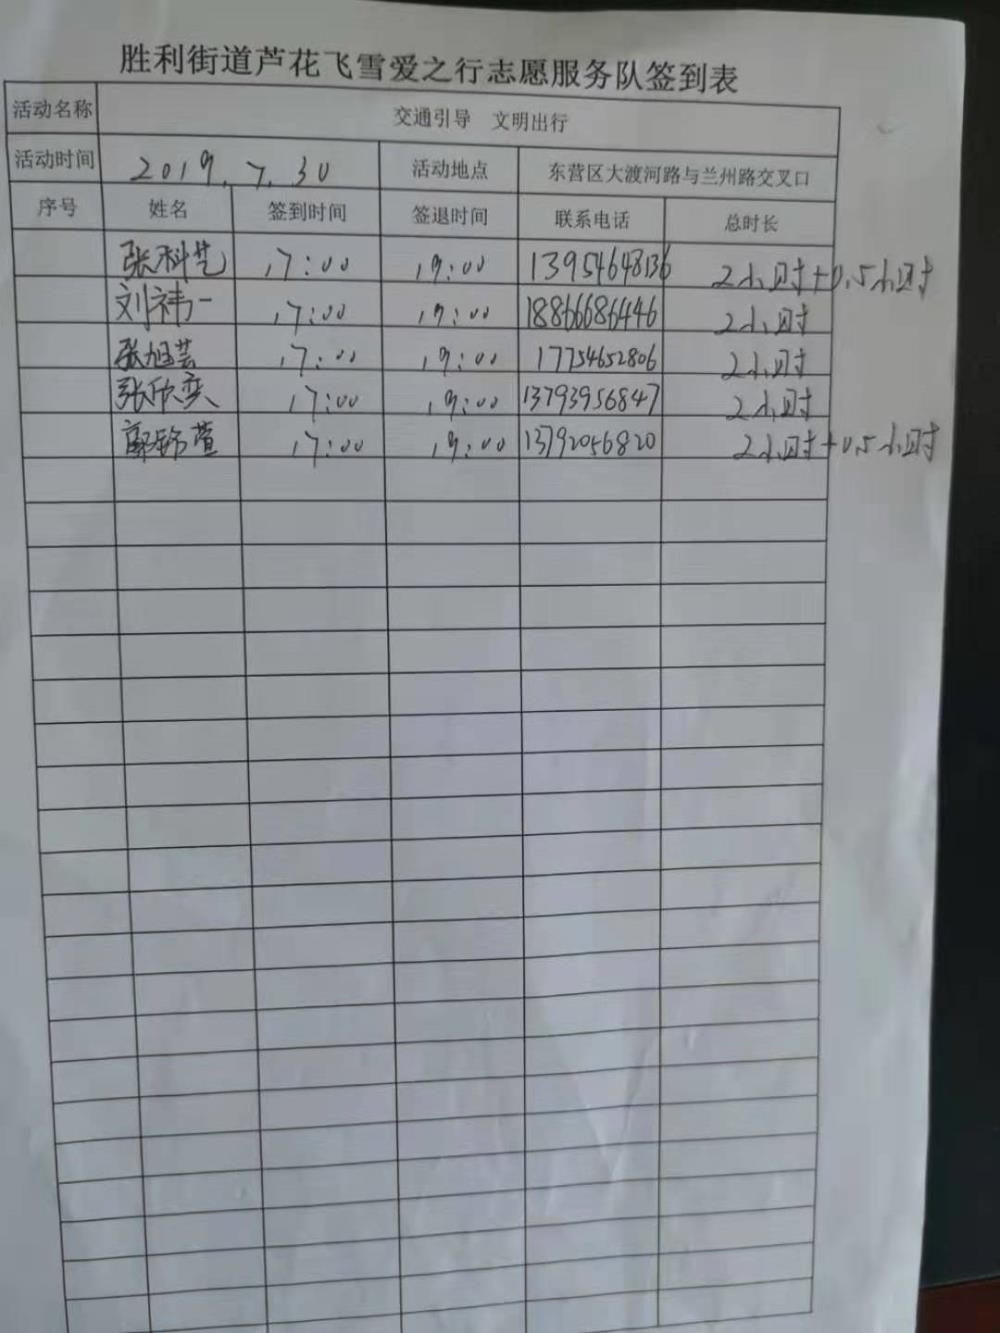 胜利街道芦花飞雪爱之行志愿服务队签到表
活动名称 交通引导 文明出行
活动时间 2019.7.30 活动地点 东营区大渡河路与兰州路交叉口
序号 姓名 签到时间 签退时间 联系电话 总时长
张科艺 17:00 19:00 13954648136 2小时+0.5小时
刘祎一 17:00 19:00 18866686446 2小时
张旭芸 17:00 19:00 17754652806 2小时
张欣奕 17:00 19:00 13793956847 2小时
萱 17:00 19:00 13792056820 2小时+0.5小时